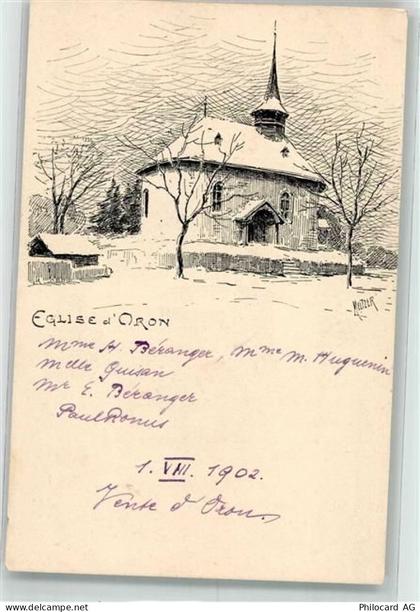 MELTZER
EGLISE d'ORON
Mme H. Béranger, Mme M. Huguenin
Melle Guisan
Mr E. Béranger
Paul Ronus
1. VIII. 1902.
Vente d'Oron.
www.delcampe.net
Copyright Philacard AG